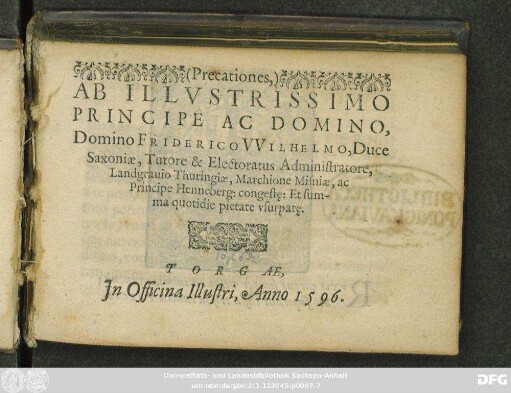 (Precationes,)
AB ILLVSTRISSIMO
PRINCIPE AC DOMINO,
Domino FRIDERICO VVILHELMO, Duce
Saxoniæ, Tutore & Electoratus Administratore,
Landgrauio Thuringiæ, Marchione Misniæ, ac
Principe Henneberg: congestę: Et sum-
ma quotidie pietate vsurpatę.
TORGAE,
In Officina Illustri, Anno 1596.
Universitäts- und Landesbibliothek Sachsen-Anhalt
urn:nbn:de:gbv:3:1-123045-p0007-7
DFG